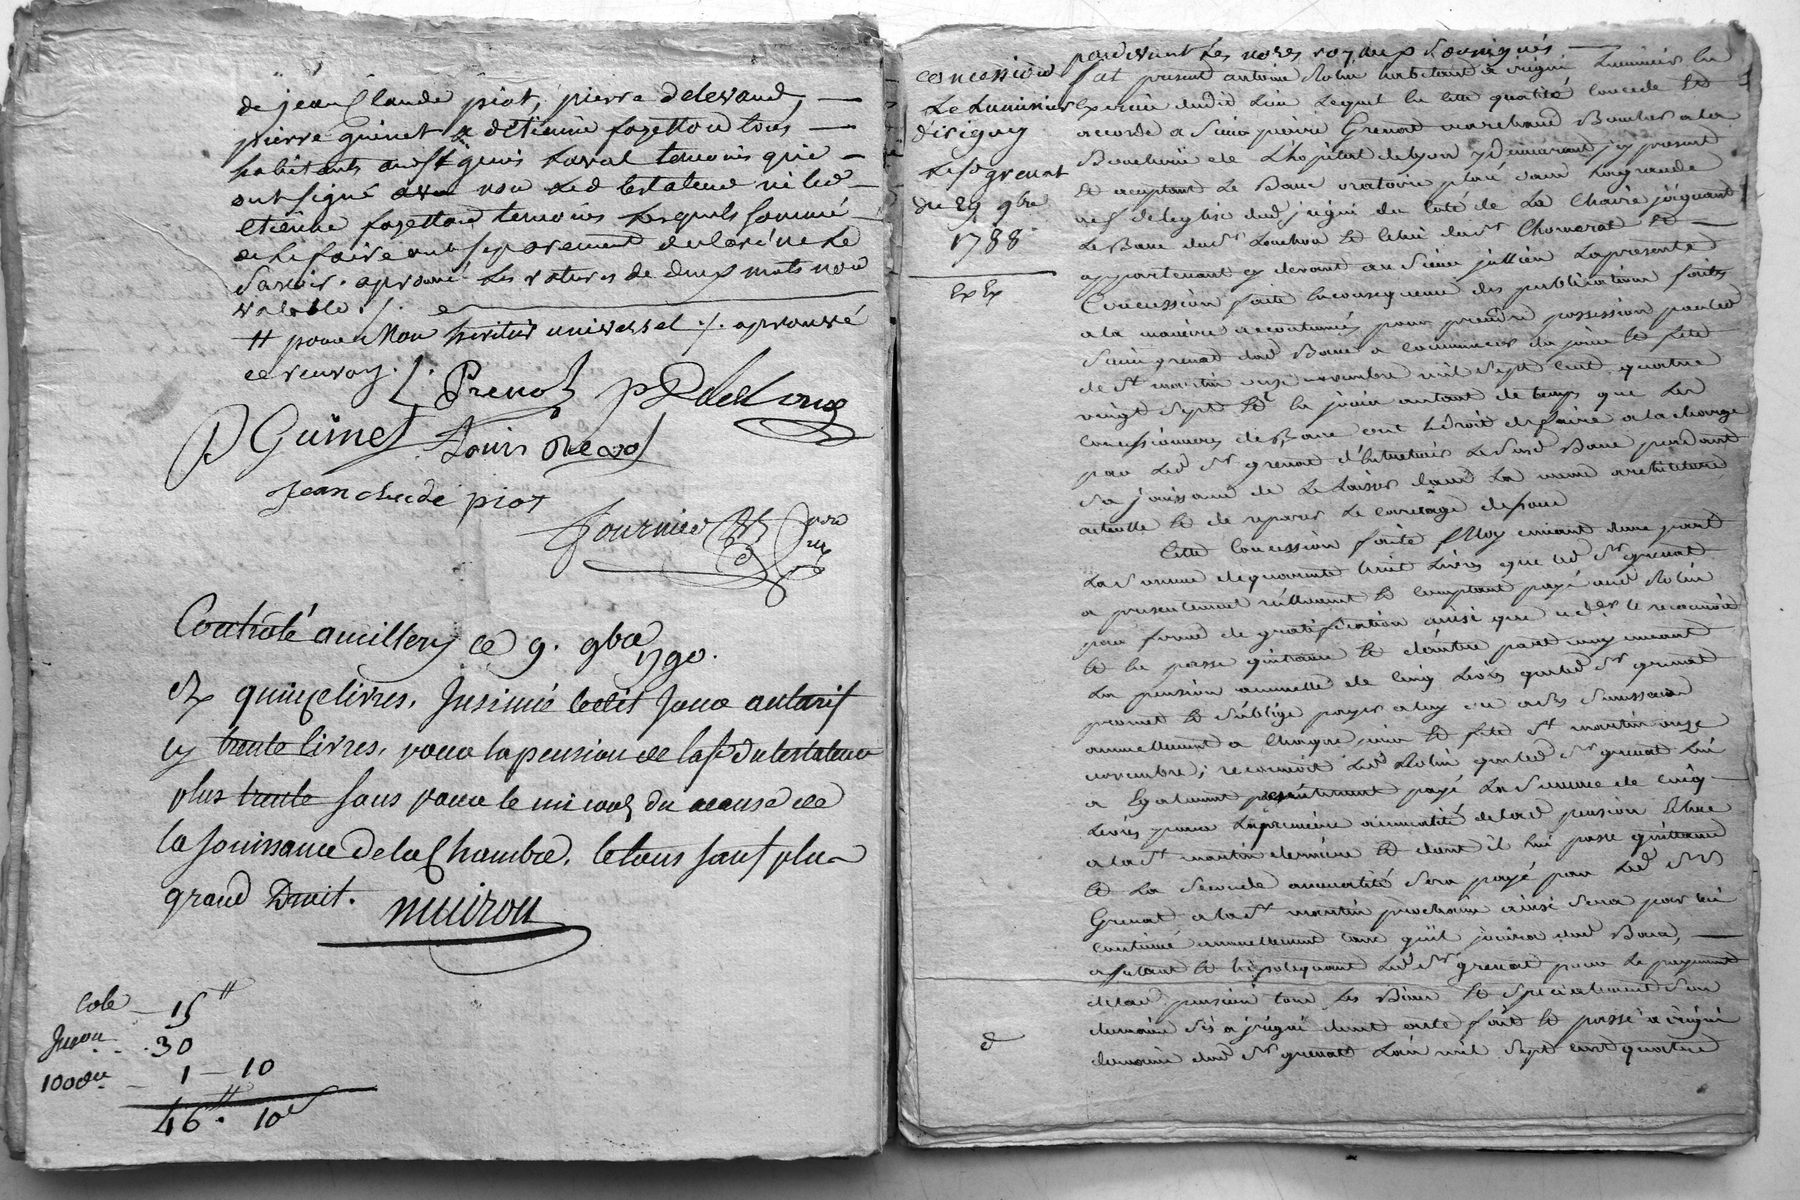 de jean Claude piot, pierre delorand,
pierre guinet & d'étienne fayetton tous
habitants audt Yrigny laval temoins qui
ont signé avec nou led testateur ni led
etienne fayetton temoins lesquels sommé
de le faire ont separement declaré ne le
savoir. aprouvé les ratures de deux mots nou
valable ./.
# pour Mon heritier universel ./. aprouvé
ce renvoy ./.
Prenot
P Guinet Louis
jean clude piot
fournier
Controlé a millery ce 9. 9bre
1790.
quinze livres. Insinué ledit jour au tarif
trente livres. pour la pension de la fe du testateur
plus trente sous pour le
la jouissance de la Chambre. le tous sauf plus
grand Droit. muiron
Cole — 15 #
Insou . 30
100ere — 1 — 10
46 #. 10 s
concession
Le Luminier
d'irigny
Le Sr grenat
du 29 9bre
1788
Ex Ex
pardevant les nores royaux soussignés
fut present antoine Robin habitant a irigni Luminier en
Exercice dudit Lieu Lequel en cette qualité concede et
accorde a Sieur pierre Grenat marchand Boucher a la
Boucherie de L'hopital de Lyon y demeurant icy present
et acceptant Le Banc oratoire placé dans la grande
nef de leglise dud irigni du coté de La Chaire joignant
Le Banc du Sr Souchon et celui du Sr Chomarat et
appartenant cy devant au Sieur jullien La presente
Concession faite en consequence des publications faites
a la maniere accoutumée pour prendre possession par led
Sieur grenat dud Banc a commencer du jour et fete
de St martin onze novembre mil sept cent quatre
vingt sept et en jouir autant de temps que les
concessionnaires de Banc ont le droit de faire a la charge
par led Sr grenat d'entretenir le susd Banc pendant
sa jouissance de le laisser dans la meme architecture
actuelle et de reparer le carrelage dessous
Cette Concession faite moyennant d'une part
La somme de quarante huit Livres que led Sr grenat
a presentement reellement et comptant payé aud Robin
par forme de gratification ainsi que le reconnoit
et en passe quittance et d'autre part moyennant
La pension annuelle de Cinq Livres que led Sr grenat
promet et s'oblige payer a luy ou a ses successeurs
annuellement a Chaque jour et fete St martin onze
novembre ; reconnoit led Robin que led Sr grenat lui
a Egalement presentement payé La Somme de cinq
Livres pour La premiere annuité de lad pension Echue
a la St martin derniere et dont il lui passe quittance
et La Seconde annuité sera payé par led Sr
Grenat a la St martin prochaine ainsi sera par lui
continué annuellement tant qu'il jouira dud Banc,
affectant et hipotequant led Sr grenat pour le payement
de lad pension tous ses Biens et specialement son
domaine sis a irigni dont acte fait et passé a irigni
domaine dud Sr grenat L'an mil sept cent quatre